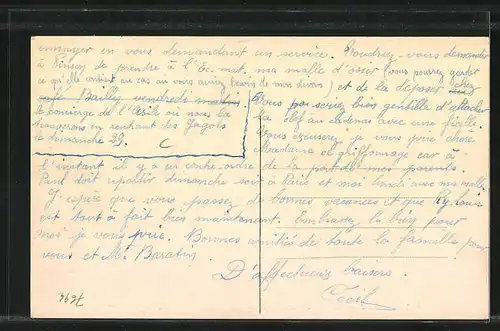 ennuyer en vous demandant un service. Voudriez-vous demander
à Simon de prendre à l'Ec. mat. ma malle d'osier (vous pourrez garder
ce qu'elle contient au cas où vous auriez besoin de mon divers) et de la déposer chez
café Bailly vendredi matin
le concierge de l'Asile où nous la
trouverons en rentrant des Fagots
le dimanche 29.
Vous seriez bien gentille d'attacher
la clef au cadenas avec une ficelle.
Vous excuserez je vous prie chère
Madame ce griffonnage car à
l'instant il y a eu contre-ordre de la part de mes parents.
Paul doit repartir dimanche soir à Paris et moi lundi avec ma malle.
J'espère que vous passez de bonnes vacances et que
est tout à fait bien maintenant. Embrassez la bien pour
moi je vous prie. Bonnes amitiés de toute la famille pour
vous et Mr Baratin
D'affectueux baisers
Cécile